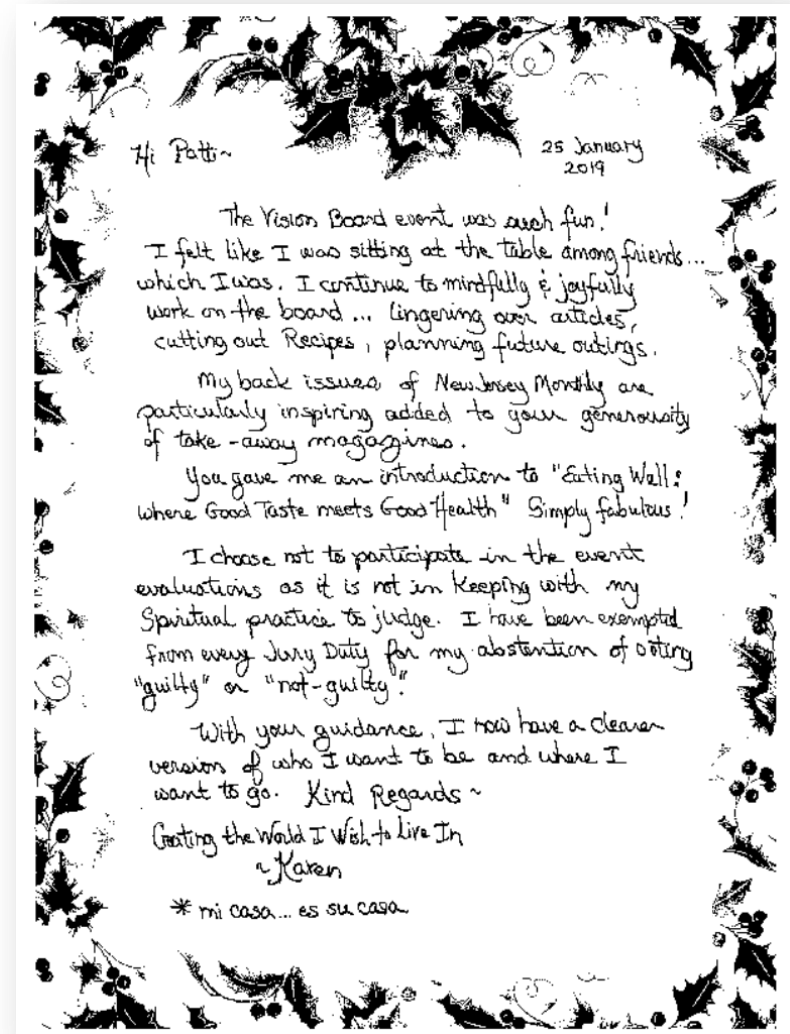 Hi Patti~
25 January
2019
The Vision Board event was such fun!
I felt like I was sitting at the table among friends...
which I was. I continue to mindfully & joyfully
work on the board... lingering over articles,
cutting out Recipes, planning future outings.
My back issues of New Jersey Monthly are
particularly inspiring added to your generousity
of take-away magazines.
You gave me an introduction to "Eating Well:
where Good Taste meets Good Health" Simply fabulous!
I choose not to participate in the event
evaluations as it is not in keeping with my
Spiritual practice to judge. I have been exempted
from every Jury Duty for my abstention of voting
"guilty" or "not-guilty".
With your guidance, I now have a clearer
version of who I want to be and where I
want to go. Kind Regards~
Creating the World I Wish to Live In
~Karen
* mi casa... es su casa